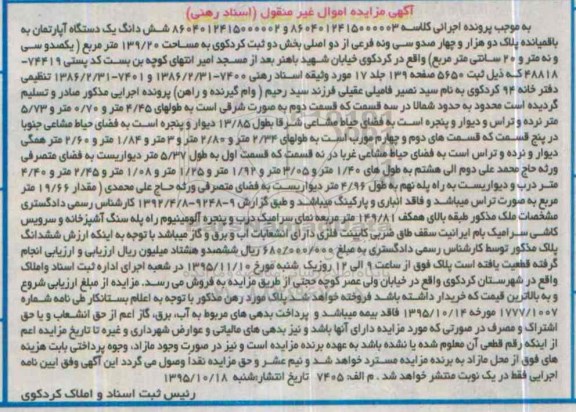 آگهی مزایده اموال غیر منقول (اسناد رهنی)
به موجب پرونده اجرائی کلاسه ۸۶۰۴۰۱۲۴۱۵۰۰۰۰۰۳ و ۸۶۰۴۰۱۲۴۱۵۰۰۰۰۰۲ شش دانگ یک دستگاه آپارتمان به
باقیمانده پلاک دو هزار و چهار صدو سی ونه فرعی از دو اصلی بخش دو ثبت کردکوی به مساحت ۱۳۹/۲۰ متر مربع ( یکصدو سی
و نه متر و ۲۰ سانتی متر مربع) واقع در کردکوی خیابان شهید باهنر بعد از مسجد امیر انتهای کوچه بن بست کد پستی ۷۴۴۱۹-
۴۸۸۱۸ که ذیل ثبت ۵۶۵۰ صفحه ۱۳۹ جلد ۱۷ مورد وثیقه اسناد رهنی ۷۴۰۰-۱۳۸۶/۲/۳۱ و ۷۴۰۱-۱۳۸۶/۲/۳۱ تنظیمی
دفتر خانه ۹۴ کردکوی به نام سید نصیر فاضلی عقیلی فرزند سید رحیم ( وام گیرنده و راهن) پرونده اجرایی مذکور صادر و تسلیم
گردیده است محدود به حدود شمالا در سه قسمت که قسمت دوم به صورت شرقی است به طولهای ۴/۴۵ متر و ۰/۷۰ متر و ۵/۷۳
متر نرده و تراس و دیوار و پنجره است به فضای حیاط مشاعی شرقا بطول ۱۳/۸۵ دیوار و پنجره است به فضای حیاط مشاعی جنوبا
در پنج قسمت که قسمت های دوم و چهارم مورب است به طولهای ۲/۳۴ متر و ۲/۸۰ متر و ۳ متر و ۱/۸۴ متر و ۲/۶۰ متر همگی
دیوار و نرده و تراس است به فضای حیاط مشاعی غربا در نه قسمت که قسمت اول به طول ۵/۳۷ متر دیواریست به فضای متصرفی
ورثه حاج محمد علی دوم الی هشتم به طول های ۱/۴۰ متر و ۳/۰۵ متر و ۱/۹۲ متر و ۱/۲۵ متر و ۱/۰۸ متر و ۲/۴۵ متر و ۴/۴۰
متر درب و دیواریست به راه پله نهم به طول ۴/۹۶ متر دیواریست به فضای متصرفی ورثه حاج علی محمدی ( مقدار ۱۹/۶۶ متر
مربع به صورت تراس میباشد و فاقد انباری و پارکینگ میباشد و طبق گزارش ۹-۹۲۴۸-۱۳۹۲/۴/۸ کارشناس رسمی دادگستری
مشخصات ملک مذکور طبقه بالای همکف ۱۴۹/۸۱ متر مربعه نمای سرامیک درب و پنجره آلومینیوم راه پله سنگ آشپزخانه و سرویس
کاشی سرامیک بام ایرانیت سقف طاق ضربی کابینت فلزی دارای انشعابات آب و برق و گاز میباشد با توجه به اینکه ارزش ششدانگ
پلاک مذکور توسط کارشناس رسمی دادگستری به مبلغ ۶۸۰/۰۰۰/۰۰۰ ریال ششصدو هشتاد میلیون ریال ارزیابی و ارزیابی انجام
گرفته قطعیت یافته است پلاک فوق از ساعت ۹ الی ۱۲ روزیک شنبه مورخ ۱۳۹۵/۱۱/۱۰ در شعبه اجرای اداره ثبت اسناد واملاک
واقع در شهرستان کردکوی واقع در خیابان ولی عصر کوچه حجتی از طریق مزایده به فروش می رسد. مزایده از مبلغ ارزیابی شروع
و به بالاترین قیمت که خریدار داشته باشد فروخته خواهد شد پلاک مورد رهن مذکور با توجه به اعلام بستانکار طی نامه شماره
۱۷۷۷/۱۰۰۷ مورخه ۱۳۹۵/۱۰/۱۴ فاقد بیمه میباشد و پرداخت بدهی های مربوط به آب، برق، گاز اعم از حق انشعاب و یا حق
اشتراک و مصرف در صورتی که مورد مزایده دارای آنها باشد و نیز بدهی های مالیاتی و عوارض شهرداری و غیره تا تاریخ مزایده اعم
از اینکه رقم قطعی آن معلوم شده یا نشده باشد به عهده برنده مزایده است و نیز در صورت وجود مازاد، وجوه پرداختی بابت هزینه
های فوق از محل مازاد به برنده مزایده مسترد خواهد شد و نیم عشر و حق مزایده نقدا وصول می گردد این آگهی وفق آیین نامه
اجرایی فقط در یک نوبت منتشر خواهد شد . م الف: ۷۴۰۵ تاریخ انتشار:شنبه ۱۳۹۵/۱۰/۱۸
رئیس ثبت اسناد و املاک کردکوی